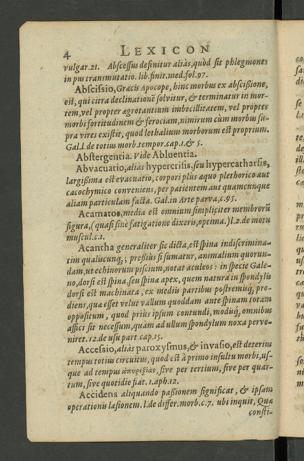 4 LEXICON
vulgar.21. Abscessus definitur aliàs, quòd sit phlegmones
in pus transmutatio. lib.finit.med.fol.97.
Abscissio, Græcis Apocope, hinc morbus ex abscissione,
est, qui citra declinationē solvitur, & terminatur in mor-
tem, vel propter ægrotantium imbecillitatem, vel propter
morbi fortitudinem & ferociam, nimirum cùm morbus su-
pra vires existit, quod lethalium morborum est proprium.
Gal.l. de totius morb.tempor.cap.1.& 5.
Abstergentia. Vide Abluentia.
Abvacuatio, aliàs hypercrisis, seu hypercatharsis,
largissima est evacuatio, corpori plus æquo plethorico aut
cacochymico conveniens, per patientem aut quamcunque
aliam particulam facta. Gal.in Arte parva.c.95.
Acamatos, media est omnium simpliciter membrorū
figura, (quasi sine fatigatione dixeris, optima.) l.2.de motu
muscul.c.1.
Acantha generaliter sic dicta, est spina indiscrimina-
tim qualiscunq;; pressius si sumatur, animalium quorun-
dam, ut echinorum piscium, notat aculeos: in specie Gale-
no, dorsi est spina, seu spinæ apex, quem natura in spondylis
dorsi est machinata, ex mediis partibus postremùq, pro-
diens, quæ esset velut vallum quoddam ante spinam totam
oppositum, quod priùs ipsum contundi, modisq, omnibus
affici sit necessum, quàm ad ullum spondylum noxa perve-
niret. 12.de usu part.cap.15.
Accessio, aliàs paroxysmus, & invasio, est deterius
tempus totius circuitus, quod est à primo insultu morbi, us-
que ad tempus sive per tertium, sive per quar-
tum, sive quotidie fiat. 1.aph.12.
Accidens aliquando passionem significat, & ipsam
operationis læsionem. l.de differ.morb.c.7. ubi inquit, Quæ
consti-